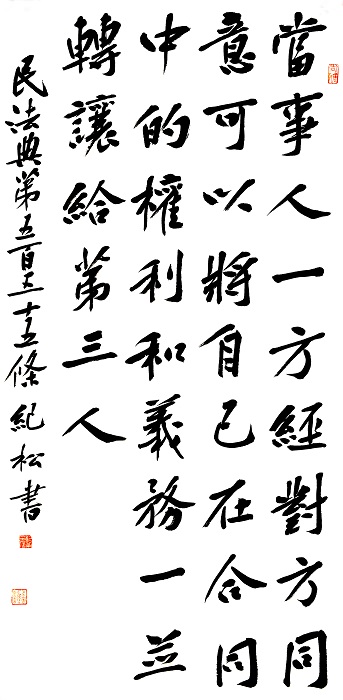 當事人一方經對方同
意可以將自己在合同
中的權利和義務一並
轉讓給第三人
民法典第五百五十五條 紀松書